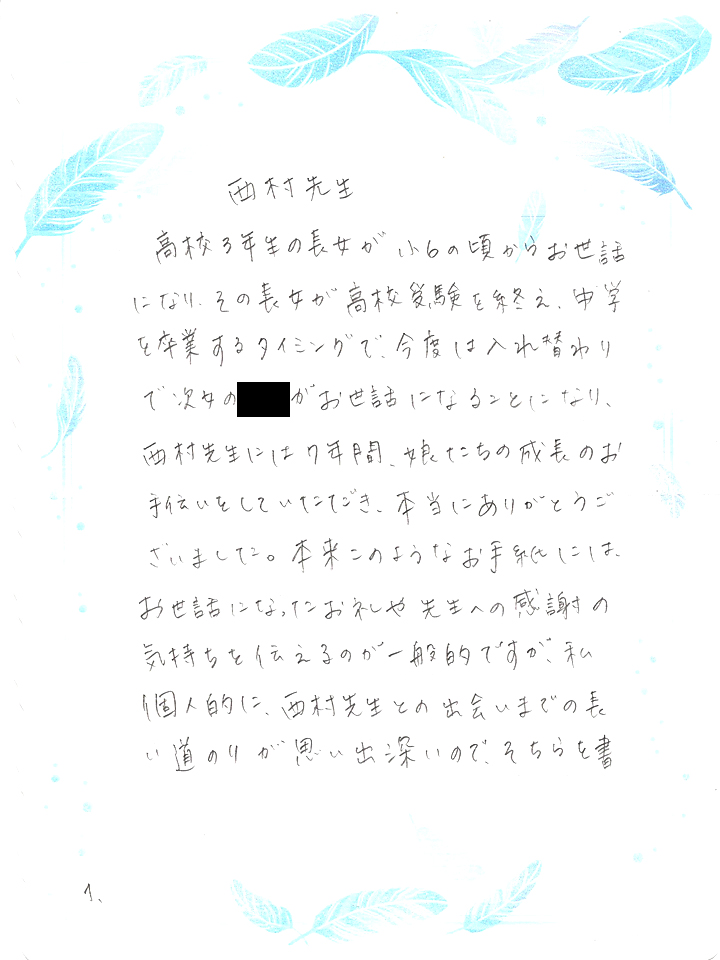 西村先生
高校3年生の長女が小6の頃からお世話
になり、その長女が高校受験を終え、中学
を卒業するタイミングで、今度は入れ替わり
で次女の がお世話になることになり、
西村先生には7年間、娘たちの成長のお
手伝いをしていただき、本当にありがとうご
ざいました。本来このようなお手紙には、
お世話になったお礼や先生への感謝の
気持ちを伝えるのが一般的ですが、私
個人的に、西村先生との出会いまでの長
い道のりが思い出深いので、そちらを書
1、